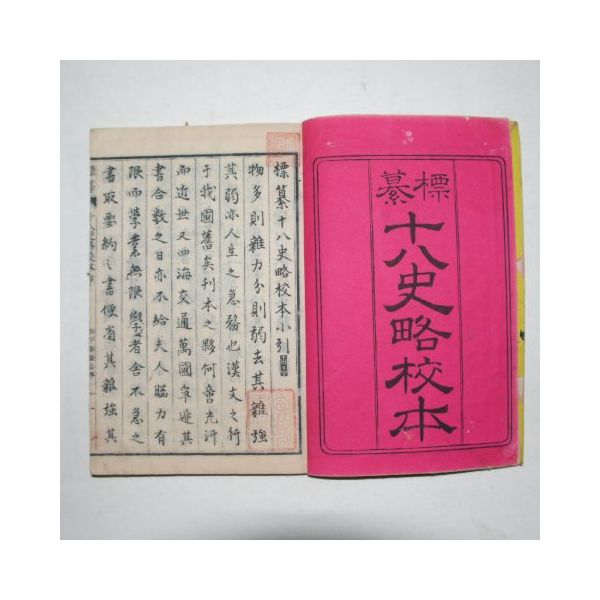 標纂
十八史略校本
標纂十八史略校本小引
物多則雜力分則弱去其雜強
其弱亦人生之急務也漢文之行
于我國舊矣刊本之夥何啻充汗
而近世又四海交通萬國車遞其
書合數之日亦不給夫人腦力有
限而學業無限學者舍不急之
書取要約之書便省其雜強其